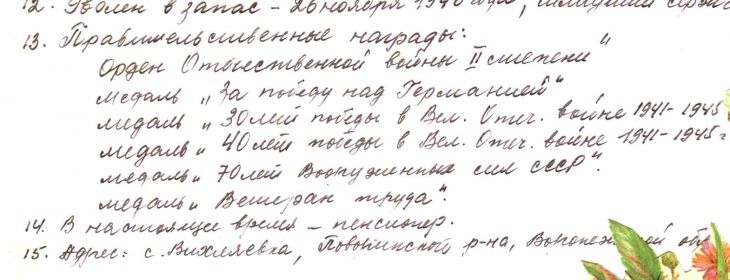 12. Уволен в запас - 26 ноября 19 года, младший
13. Правительственные награды:
Орден Отечественной войны II степени"
медаль „За победу над Германией"
медаль „30 лет победы в Вел. Отеч. войне 1941-1945
медаль „40 лет победы в Вел. Отеч. войне 1941-1945 г
медаль „70 лет Вооруженных сил СССР".
медаль „Ветеран труда".
14. В настоящее время - пенсионер.
15. Адрес: с. Вихляевка, Поворинского р-на, Воронежской обл